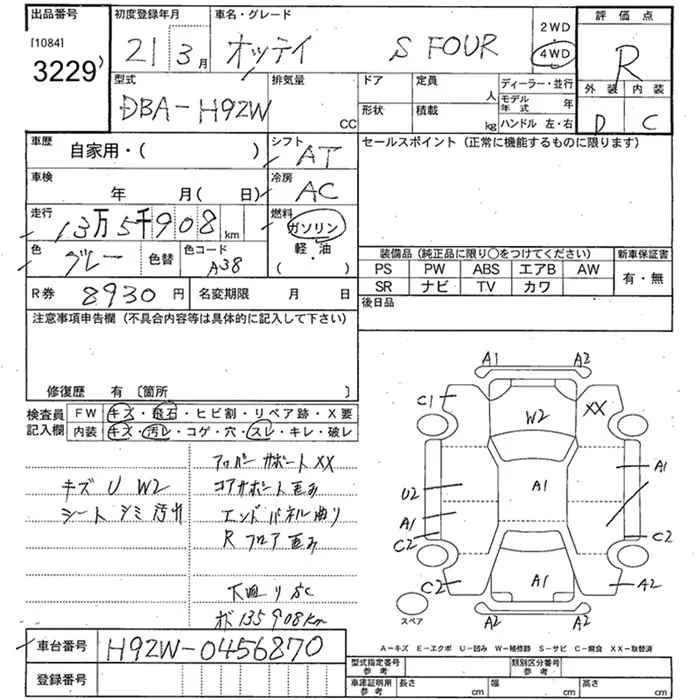 出品番号 [1084] 3229
初度登録年月 21 3月
車名・グレード オッティ S FOUR
2WD
4WD
評価点 R
外装 内装
D C
型式 DBA-H92W
排気量 CC
ドア 定員 人
形状 積載 kg
ディーラー・並行
モデル年式 年
ハンドル 左・右
車歴 自家用・( )
シフト AT
セールスポイント (正常に機能するものに限ります)
車検 年 月(日)
冷房 AC
走行 13万5千908km
燃料 ガソリン
軽・油
( )
色 グレー 色替 色コード A38
装備品 (純正品に限り〇をつけてください) 新車保証書
PS PW ABS エアB AW 有・無
SR ナビ TV カワ
R券 8930円 名変期限 月 日
後日品
注意事項申告欄 (不具合内容等は具体的に記入して下さい)
修復歴 有 〔箇所 〕
検査員記入欄 FW キズ・飛石・ヒビ割・リペア跡・X要
内装 キズ・汚レ・コゲ・穴・スレ・キレ・破レ
キズ U W2
シート シミ 汚れ
アッパーサポート XX
コアサポート 歪み
エンドパネル 曲り
R フロア 歪み
下廻りSC
ポ 135908km
A1 A2
C1 XX
W2
A1 A1
U2
A1
C2 C2
C2 A1 A2
スペア
A2 A2
A-キズ E-エクボ U-凹み W-補修跡 S-サビ C-腐食 XX-取替済
車台番号 H92W-0456870
登録番号
型式指定番号 参考 類別区分番号 参考
車庫証明用 参考 長さ cm 幅 cm 高さ cm